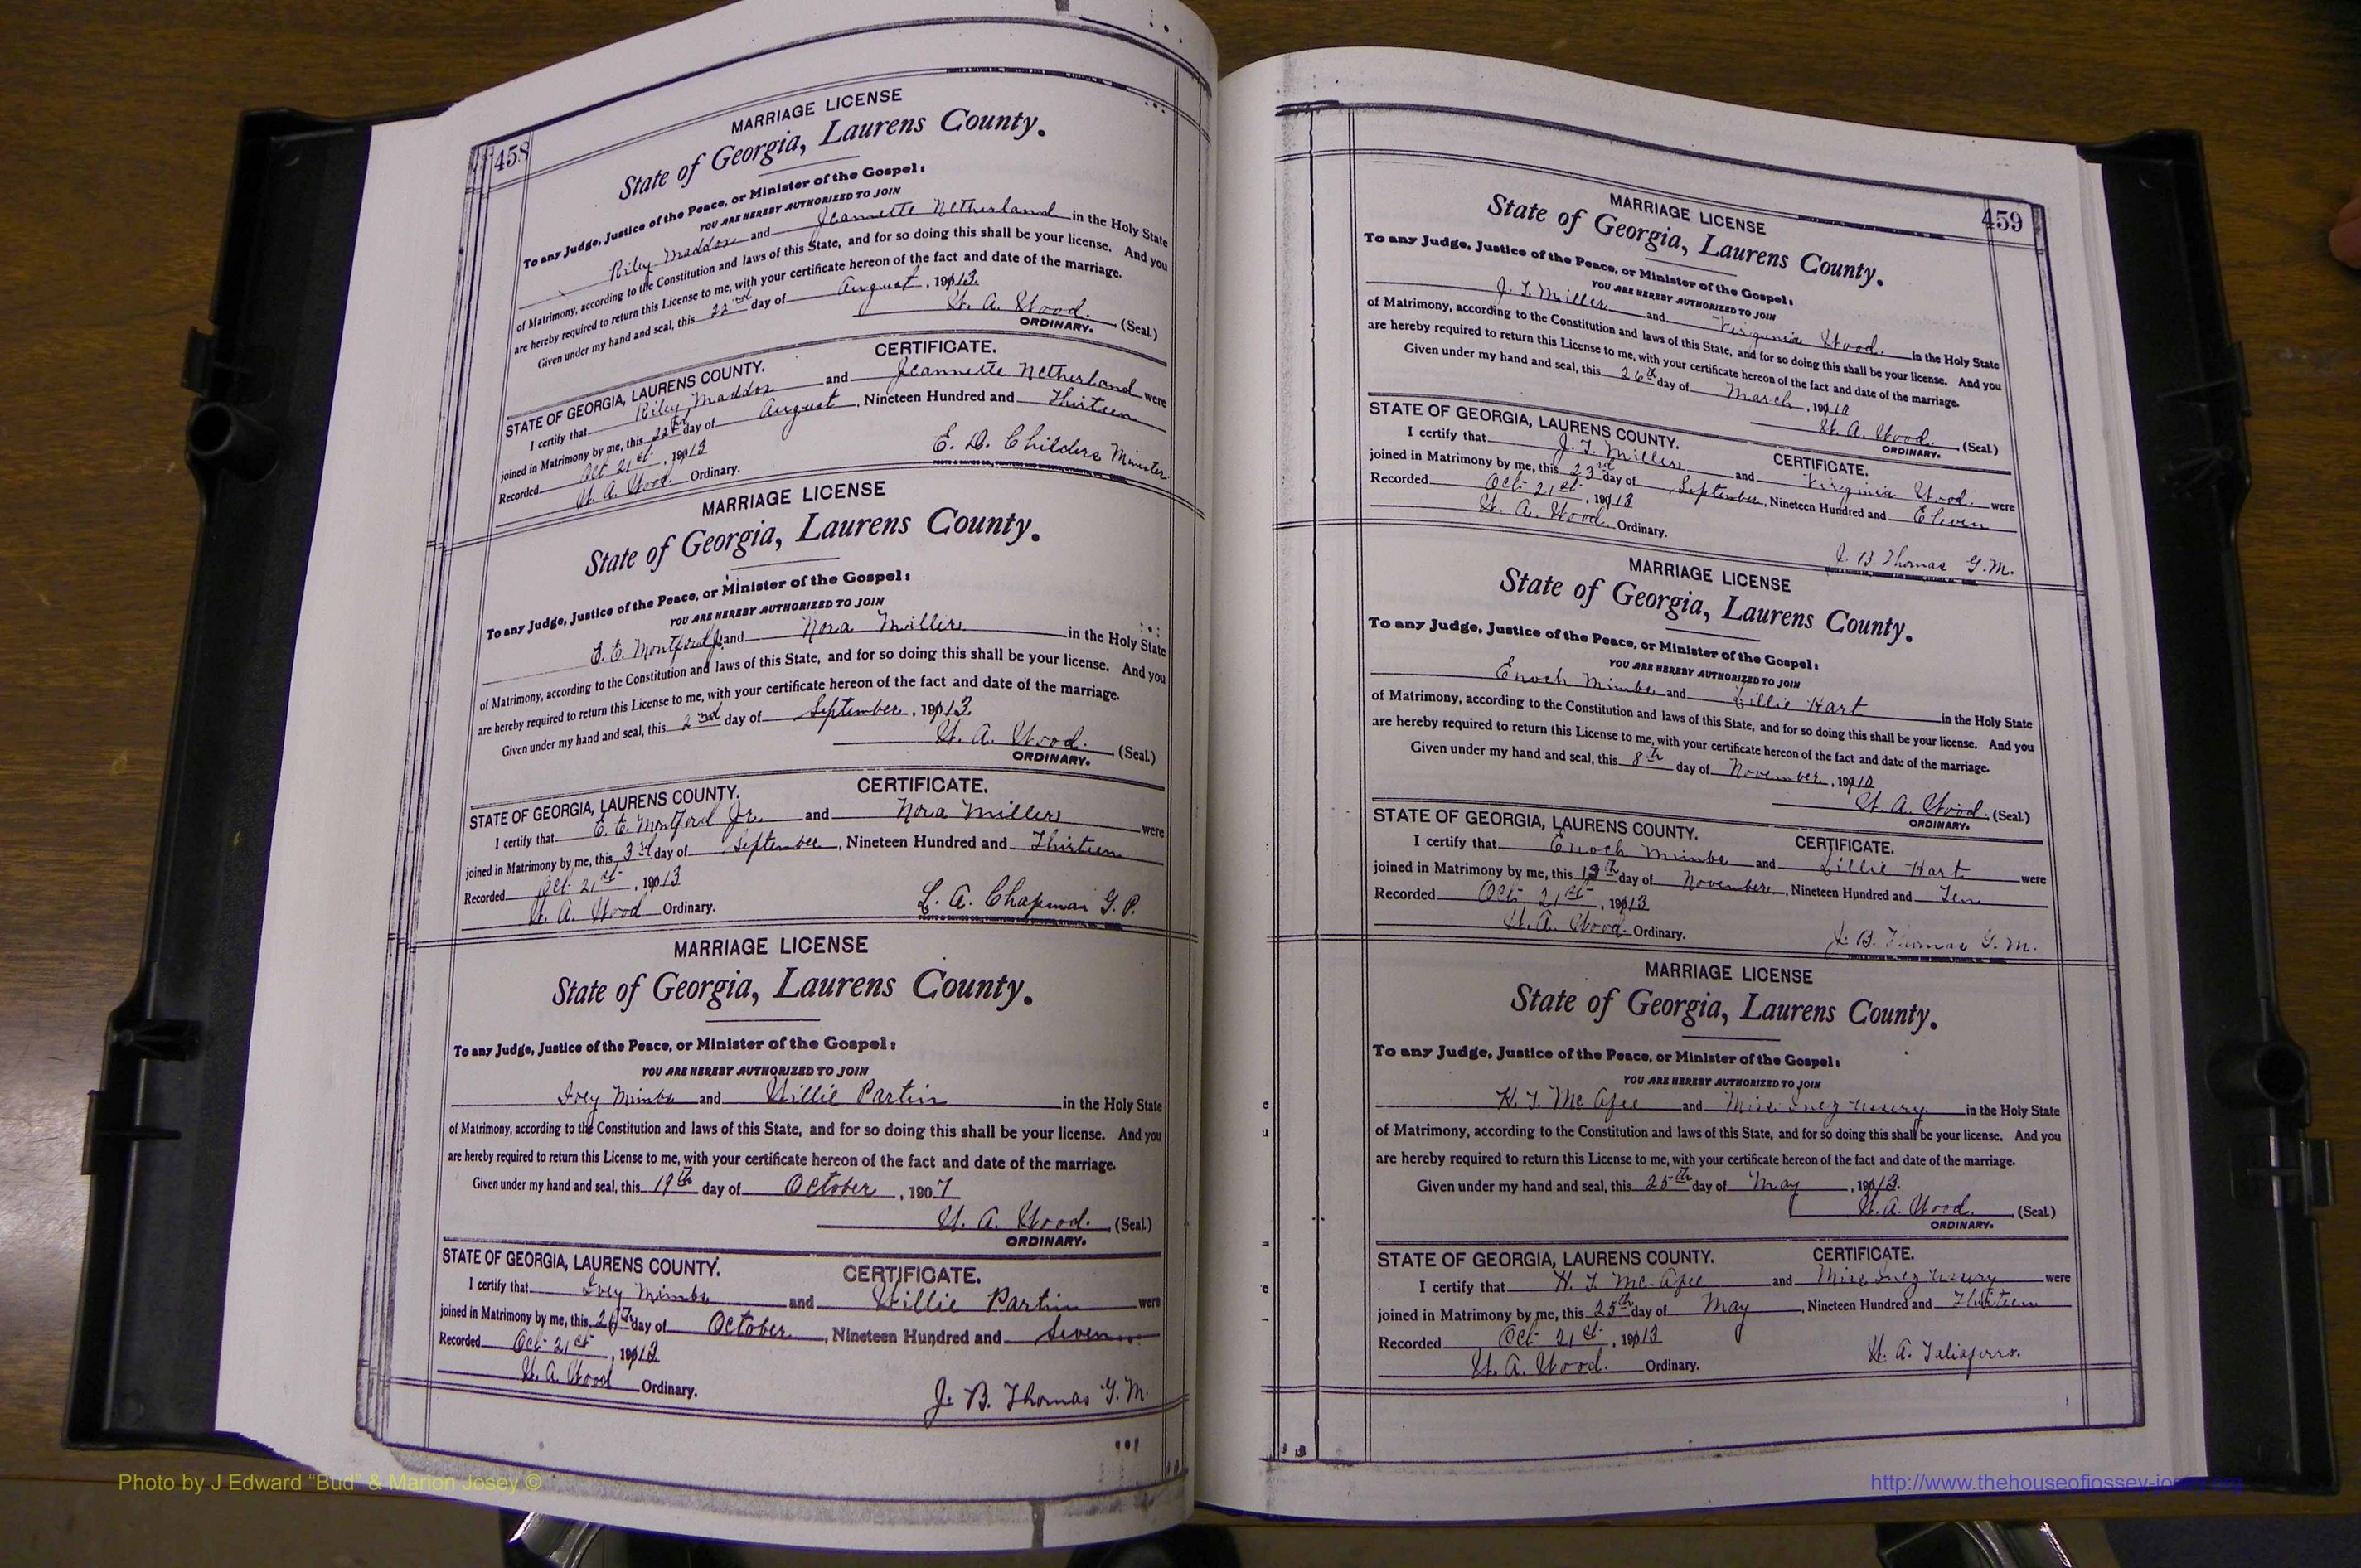 458
MARRIAGE LICENSE
State of Georgia, Laurens County.
To any Judge, Justice of the Peace, or Minister of the Gospel:
YOU ARE HEREBY AUTHORIZED TO JOIN
Riley Maddox and Jeannette Netherland in the Holy State
of Matrimony, according to the Constitution and laws of this State, and for so doing this shall be your license. And you
are hereby required to return this License to me, with your certificate hereon of the fact and date of the marriage.
Given under my hand and seal, this 22nd day of August, 1913.
W. A. Wood. (Seal.)
ORDINARY.
STATE OF GEORGIA, LAURENS COUNTY. CERTIFICATE.
I certify that Riley Maddox and Jeannette Netherland were
joined in Matrimony by me, this day of August, Nineteen Hundred and Thirteen
Recorded Oct 21st, 1913
W. A. Wood. Ordinary.
E. D. Childers Minister
MARRIAGE LICENSE
State of Georgia, Laurens County.
To any Judge, Justice of the Peace, or Minister of the Gospel:
YOU ARE HEREBY AUTHORIZED TO JOIN
E. E. Montford Jr. and Nora Miller in the Holy State
of Matrimony, according to the Constitution and laws of this State, and for so doing this shall be your license. And you
are hereby required to return this License to me, with your certificate hereon of the fact and date of the marriage.
Given under my hand and seal, this 2nd day of September, 1913.
W. A. Wood. (Seal.)
ORDINARY.
STATE OF GEORGIA, LAURENS COUNTY. CERTIFICATE.
I certify that E. E. Montford Jr. and Nora Miller were
joined in Matrimony by me, this 3rd day of September, Nineteen Hundred and Thirteen
Recorded Oct 21st, 1913
W. A. Wood Ordinary.
L. A. Chapman J. P.
MARRIAGE LICENSE
State of Georgia, Laurens County.
To any Judge, Justice of the Peace, or Minister of the Gospel:
YOU ARE HEREBY AUTHORIZED TO JOIN
Ivey Mimbs and Willie Partin in the Holy State
of Matrimony, according to the Constitution and laws of this State, and for so doing this shall be your license. And you
are hereby required to return this License to me, with your certificate hereon of the fact and date of the marriage.
Given under my hand and seal, this 19th day of October, 1907
W. A. Wood. (Seal.)
ORDINARY.
STATE OF GEORGIA, LAURENS COUNTY. CERTIFICATE.
I certify that Ivey Mimbs and Willie Partin were
joined in Matrimony by me, this day of October, Nineteen Hundred and Seven
Recorded Oct 21st, 1913
W. A. Wood Ordinary.
J. B. Thomas J. M.
459
MARRIAGE LICENSE
State of Georgia, Laurens County.
To any Judge, Justice of the Peace, or Minister of the Gospel:
YOU ARE HEREBY AUTHORIZED TO JOIN
J. T. Miller and Virginia Wood. in the Holy State
of Matrimony, according to the Constitution and laws of this State, and for so doing this shall be your license. And you
are hereby required to return this License to me, with your certificate hereon of the fact and date of the marriage.
Given under my hand and seal, this 26th day of March, 1910
W. A. Wood. (Seal.)
ORDINARY.
STATE OF GEORGIA, LAURENS COUNTY. CERTIFICATE.
I certify that J. T. Miller and Virginia Wood. were
joined in Matrimony by me, this 23rd day of September, Nineteen Hundred and Eleven
Recorded Oct 21st, 1913
W. A. Wood. Ordinary.
J. B. Thomas J. M.
MARRIAGE LICENSE
State of Georgia, Laurens County.
To any Judge, Justice of the Peace, or Minister of the Gospel:
YOU ARE HEREBY AUTHORIZED TO JOIN
Enoch Mimbs and Lillie Hart in the Holy State
of Matrimony, according to the Constitution and laws of this State, and for so doing this shall be your license. And you
are hereby required to return this License to me, with your certificate hereon of the fact and date of the marriage.
Given under my hand and seal, this 8th day of November, 1910
W. A. Wood. (Seal.)
ORDINARY.
STATE OF GEORGIA, LAURENS COUNTY. CERTIFICATE.
I certify that Enoch Mimbs and Lillie Hart were
joined in Matrimony by me, this day of November, Nineteen Hundred and Ten
Recorded Oct 21st, 1913
W. A. Wood. Ordinary.
J. B. Thomas J. M.
MARRIAGE LICENSE
State of Georgia, Laurens County.
To any Judge, Justice of the Peace, or Minister of the Gospel:
YOU ARE HEREBY AUTHORIZED TO JOIN
H. T. McAfee and Miss Inez Ussery in the Holy State
of Matrimony, according to the Constitution and laws of this State, and for so doing this shall be your license. And you
are hereby required to return this License to me, with your certificate hereon of the fact and date of the marriage.
Given under my hand and seal, this 25th day of May, 1913.
W. A. Wood. (Seal.)
ORDINARY.
STATE OF GEORGIA, LAURENS COUNTY. CERTIFICATE.
I certify that H. T. McAfee and Miss Inez Ussery were
joined in Matrimony by me, this 25th day of May, Nineteen Hundred and Thirteen
Recorded Oct 21st, 1913
W. A. Wood. Ordinary.
W. A. Taliaferro.
Photo by J Edward "Bud" & Marion Josey ©
http://www.thehouseofjossey-josey.org